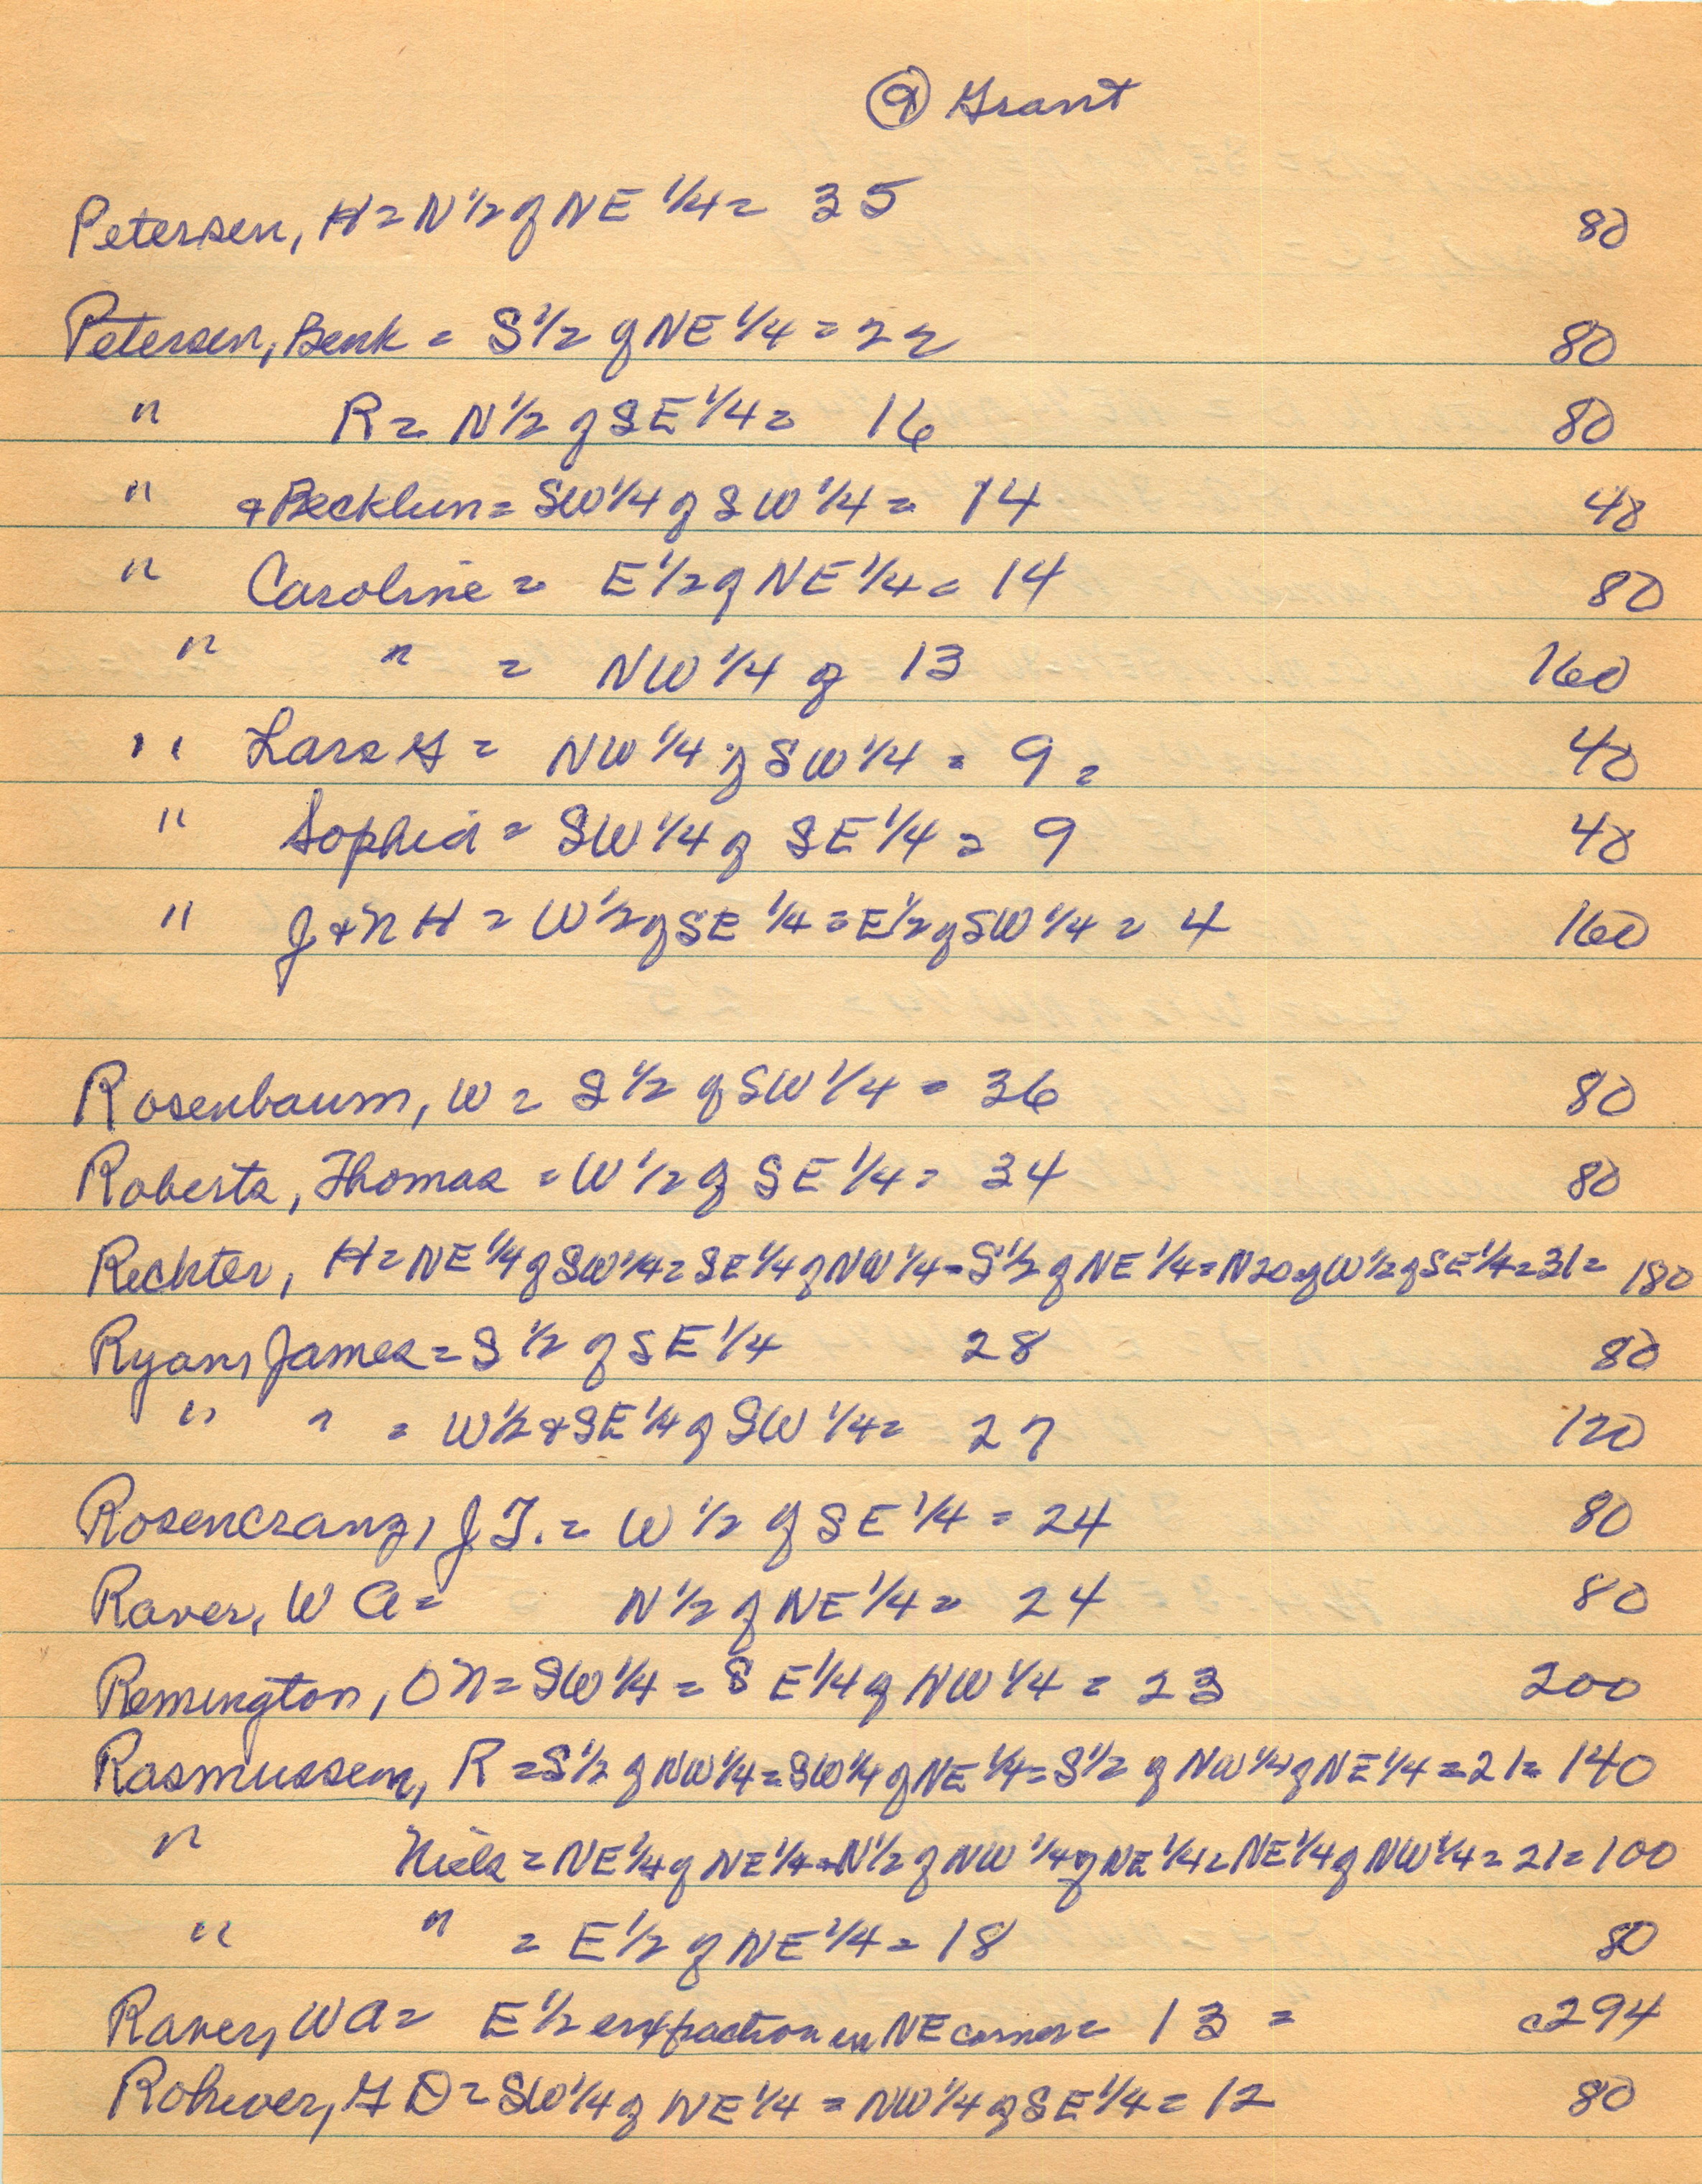 9 Grant
Petersen, H = N 1/2 of NE 1/4 = 35 80
Petersen, Benk = S 1/2 of NE 1/4 = 22 80
" R = N 1/2 of SE 1/4 = 16 80
" & Becklun = SW 1/4 of SW 1/4 = 14 40
" Caroline = E 1/2 of NE 1/4 = 14 80
" " = NW 1/4 of 13 160
" Lars G = NW 1/4 of SW 1/4 = 9 = 40
" Sophia = SW 1/4 of SE 1/4 = 9 40
" J & N H = W 1/2 of SE 1/4 = E 1/2 of SW 1/4 = 4 160
Rosenbaum, W = S 1/2 of SW 1/4 = 36 80
Roberts, Thomas = W 1/2 of SE 1/4 = 34 80
Rechter, H = NE 1/4 of SW 1/4 = SE 1/4 of NW 1/4 = S 1/2 of NE 1/4 = N 20 of W 1/2 of SE 1/4 = 31 = 180
Ryan, James = S 1/2 of SE 1/4 28 80
" " = W 1/2 & SE 1/4 of SW 1/4 = 27 120
Rosencranz, J T. = W 1/2 of SE 1/4 = 24 80
Raver, W A = N 1/2 of NE 1/4 = 24 80
Remington, O N = SW 1/4 = S E 1/4 of NW 1/4 = 23 200
Rasmussen, R = S 1/2 of NW 1/4 = SW 1/4 of NE 1/4 = S 1/2 of NW 1/4 of NE 1/4 = 21 = 140
" Niels = NE 1/4 of NE 1/4 = N 1/2 of NW 1/4 of NE 1/4 = NE 1/4 of NW 1/4 = 21 = 100
" " = E 1/2 of NE 1/4 = 18 80
Raver, W A = E 1/2 fraction in NE corner = 13 = 294
Rohwer, G D = SW 1/4 of NE 1/4 = NW 1/4 of SE 1/4 = 12 80